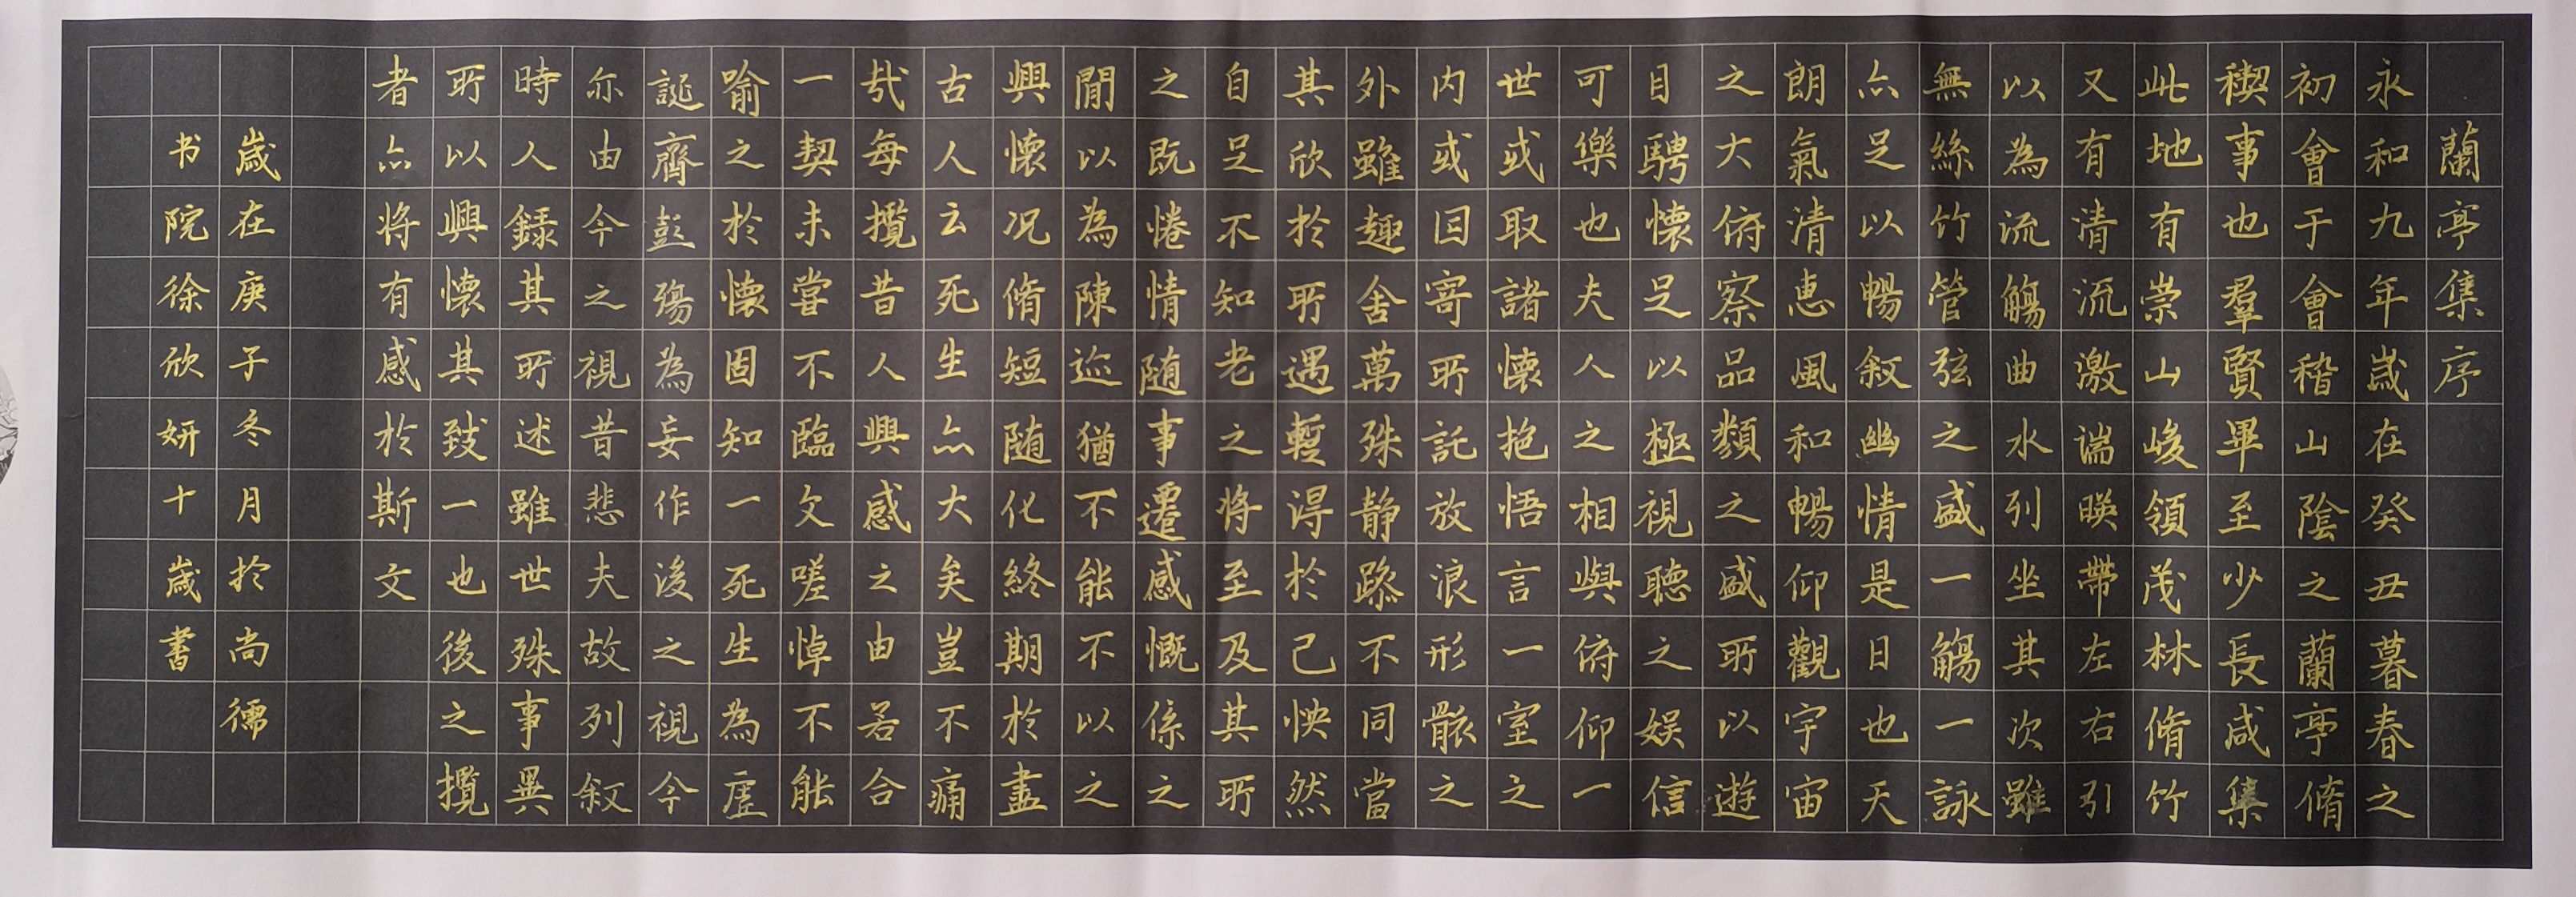 蘭亭集序
永和九年歲在癸丑暮春之
初會于會稽山陰之蘭亭脩
稧事也羣賢畢至少長咸集
此地有崇山峻領茂林脩竹
又有清流激湍暎帶左右引
以為流觴曲水列坐其次雖
無絲竹管弦之盛一觴一詠
亦足以暢叙幽情是日也天
朗氣清惠風和暢仰觀宇宙
之大俯察品類之盛所以遊
目騁懷足以極視聽之娛信
可樂也夫人之相與俯仰一
世或取諸懷抱悟言一室之
内或因寄所託放浪形骸之
外雖趣舍萬殊静躁不同當
其欣於所遇暫得於己怏然
自足不知老之將至及其所
之既惓情随事遷感慨係之
閒以為陳迹猶不能不以之
興懷況脩短随化終期於盡
古人云死生亦大矣豈不痛
哉每攬昔人興感之由若合
一契未嘗不臨文嗟悼不能
喻之於懷固知一死生為虛
誕齊彭殤為妄作後之視今
亦由今之視昔悲夫故列叙
時人録其所述雖世殊事異
所以興懷其致一也後之攬
者亦將有感於斯文
歲在庚子冬月於尚儒
书院徐欣妍十歲書